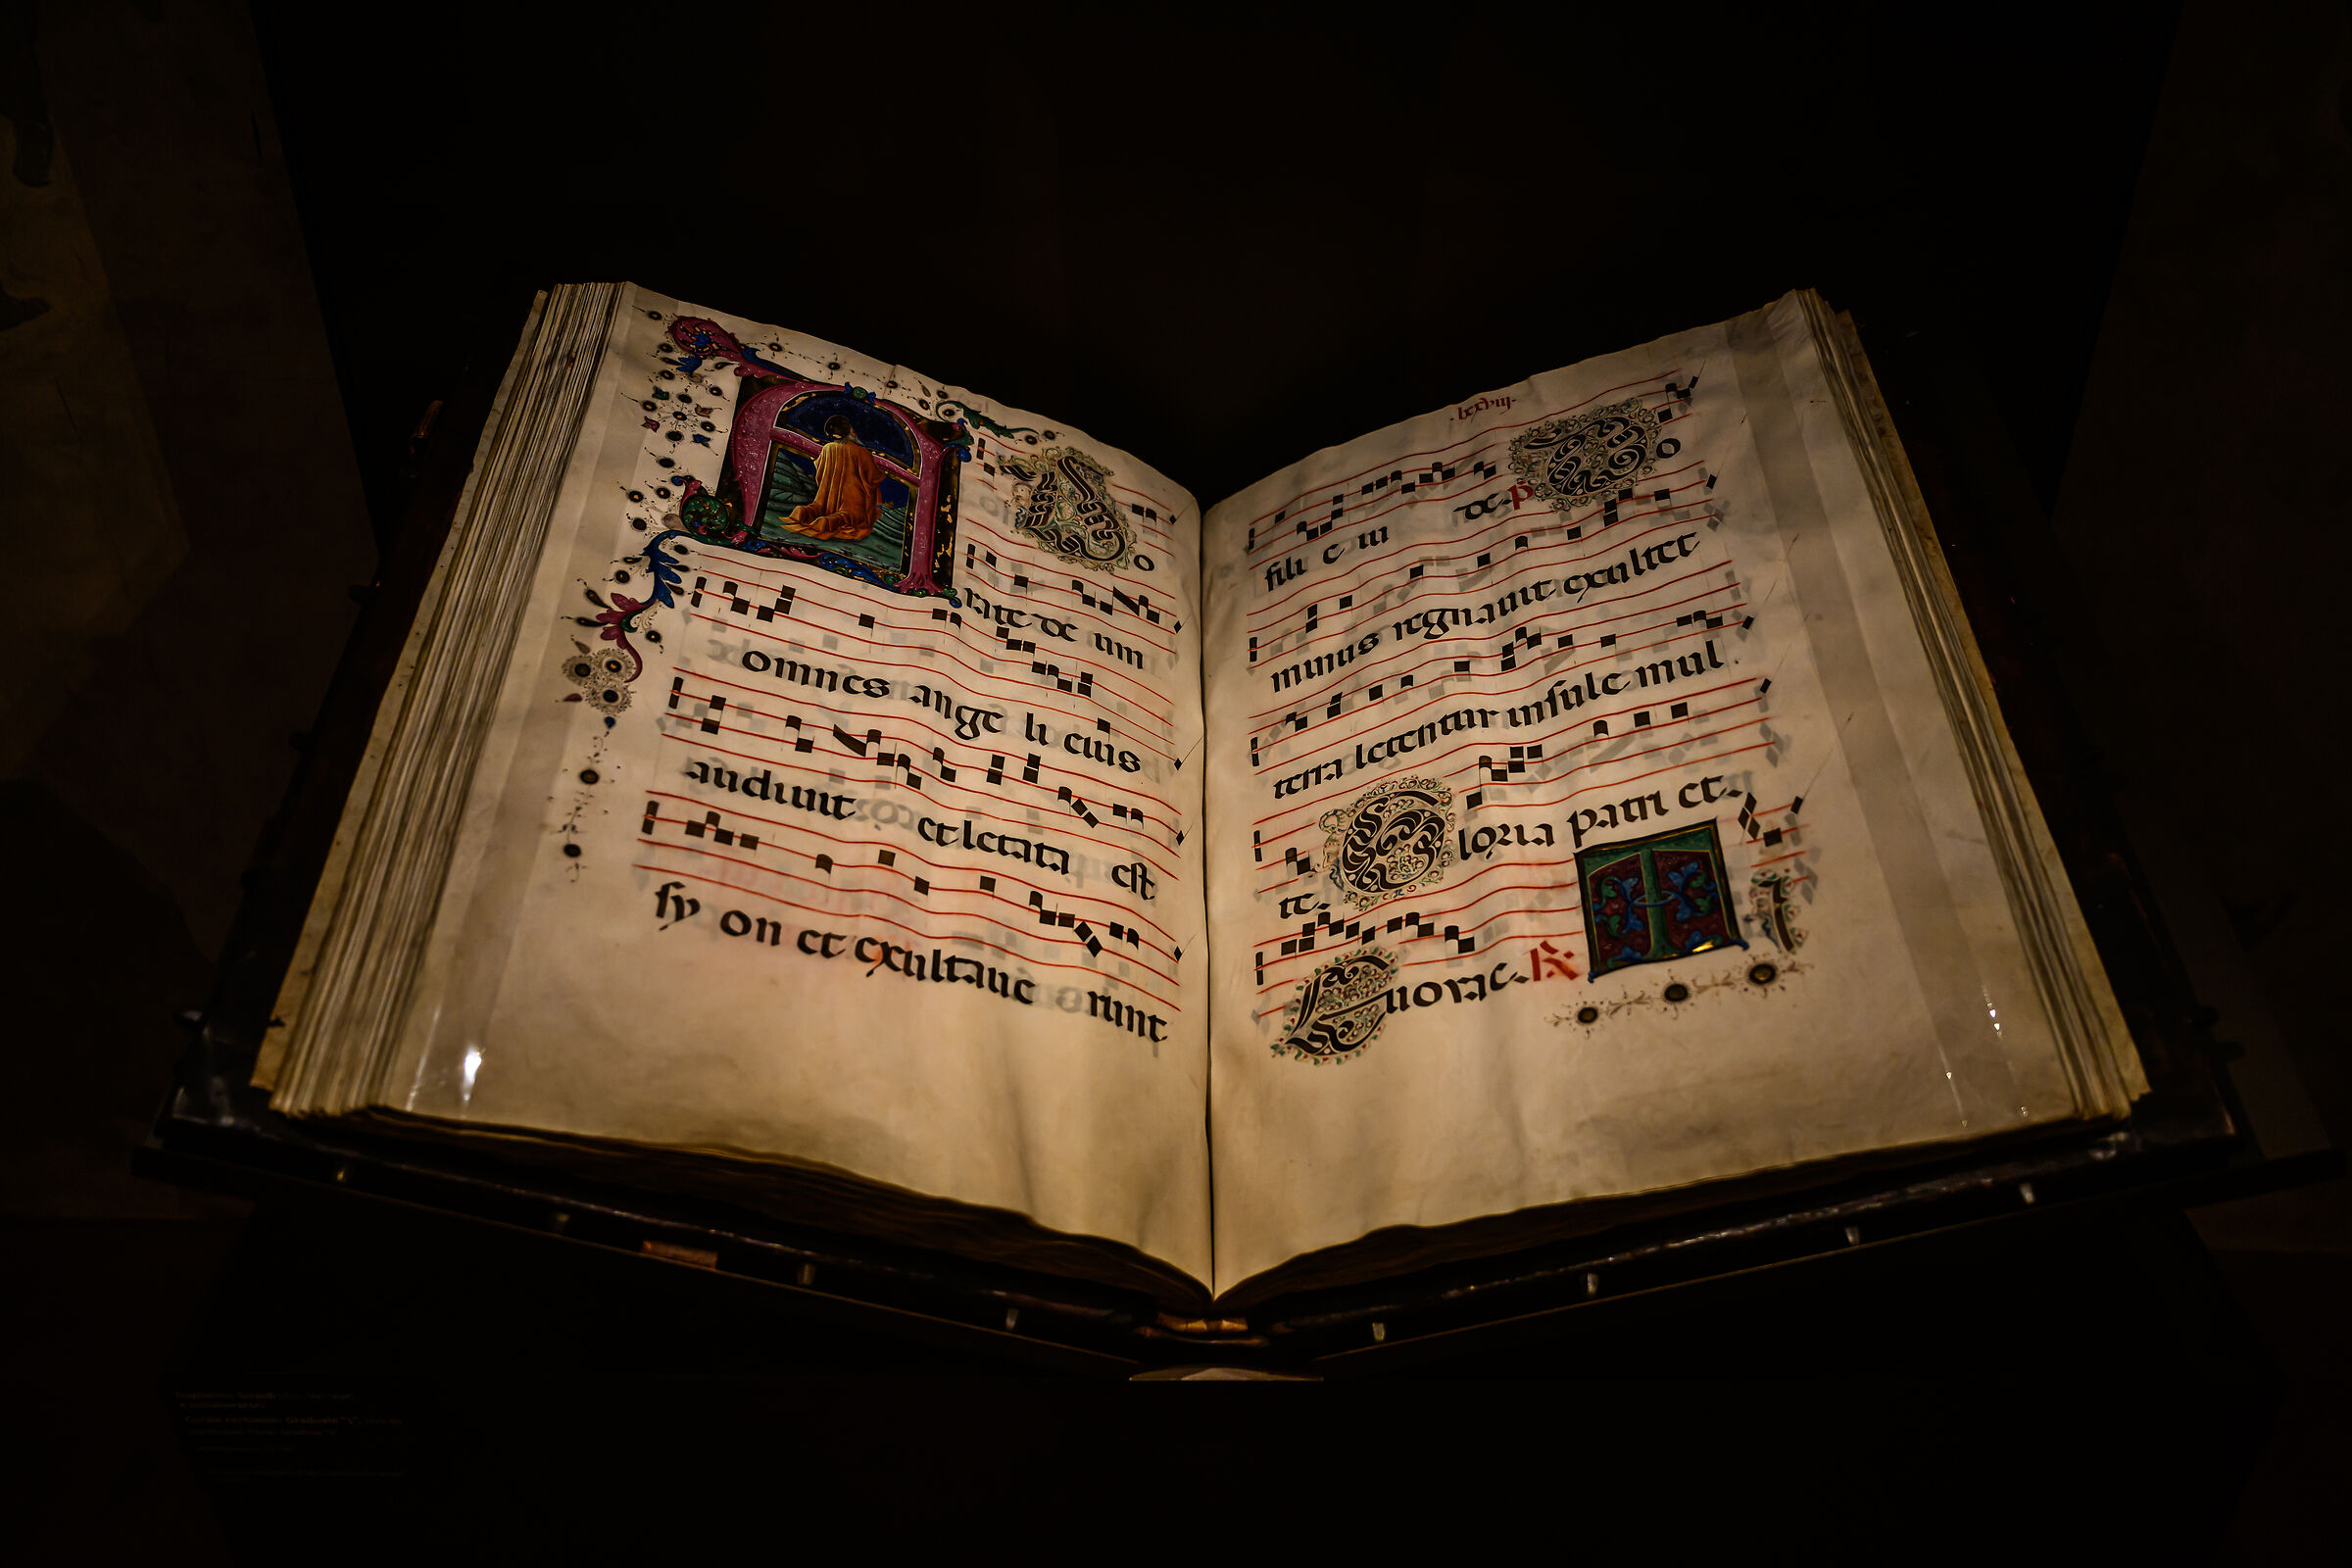 A D o
rate de um
omnes ange li eius
audiuit et letata est
sy on et exultaue runt
.lxxviij.
fili e iu de. p D o
minus regnauit exultet
terra letentur insule mul
te. G loria patri et.
E uouae. R T I